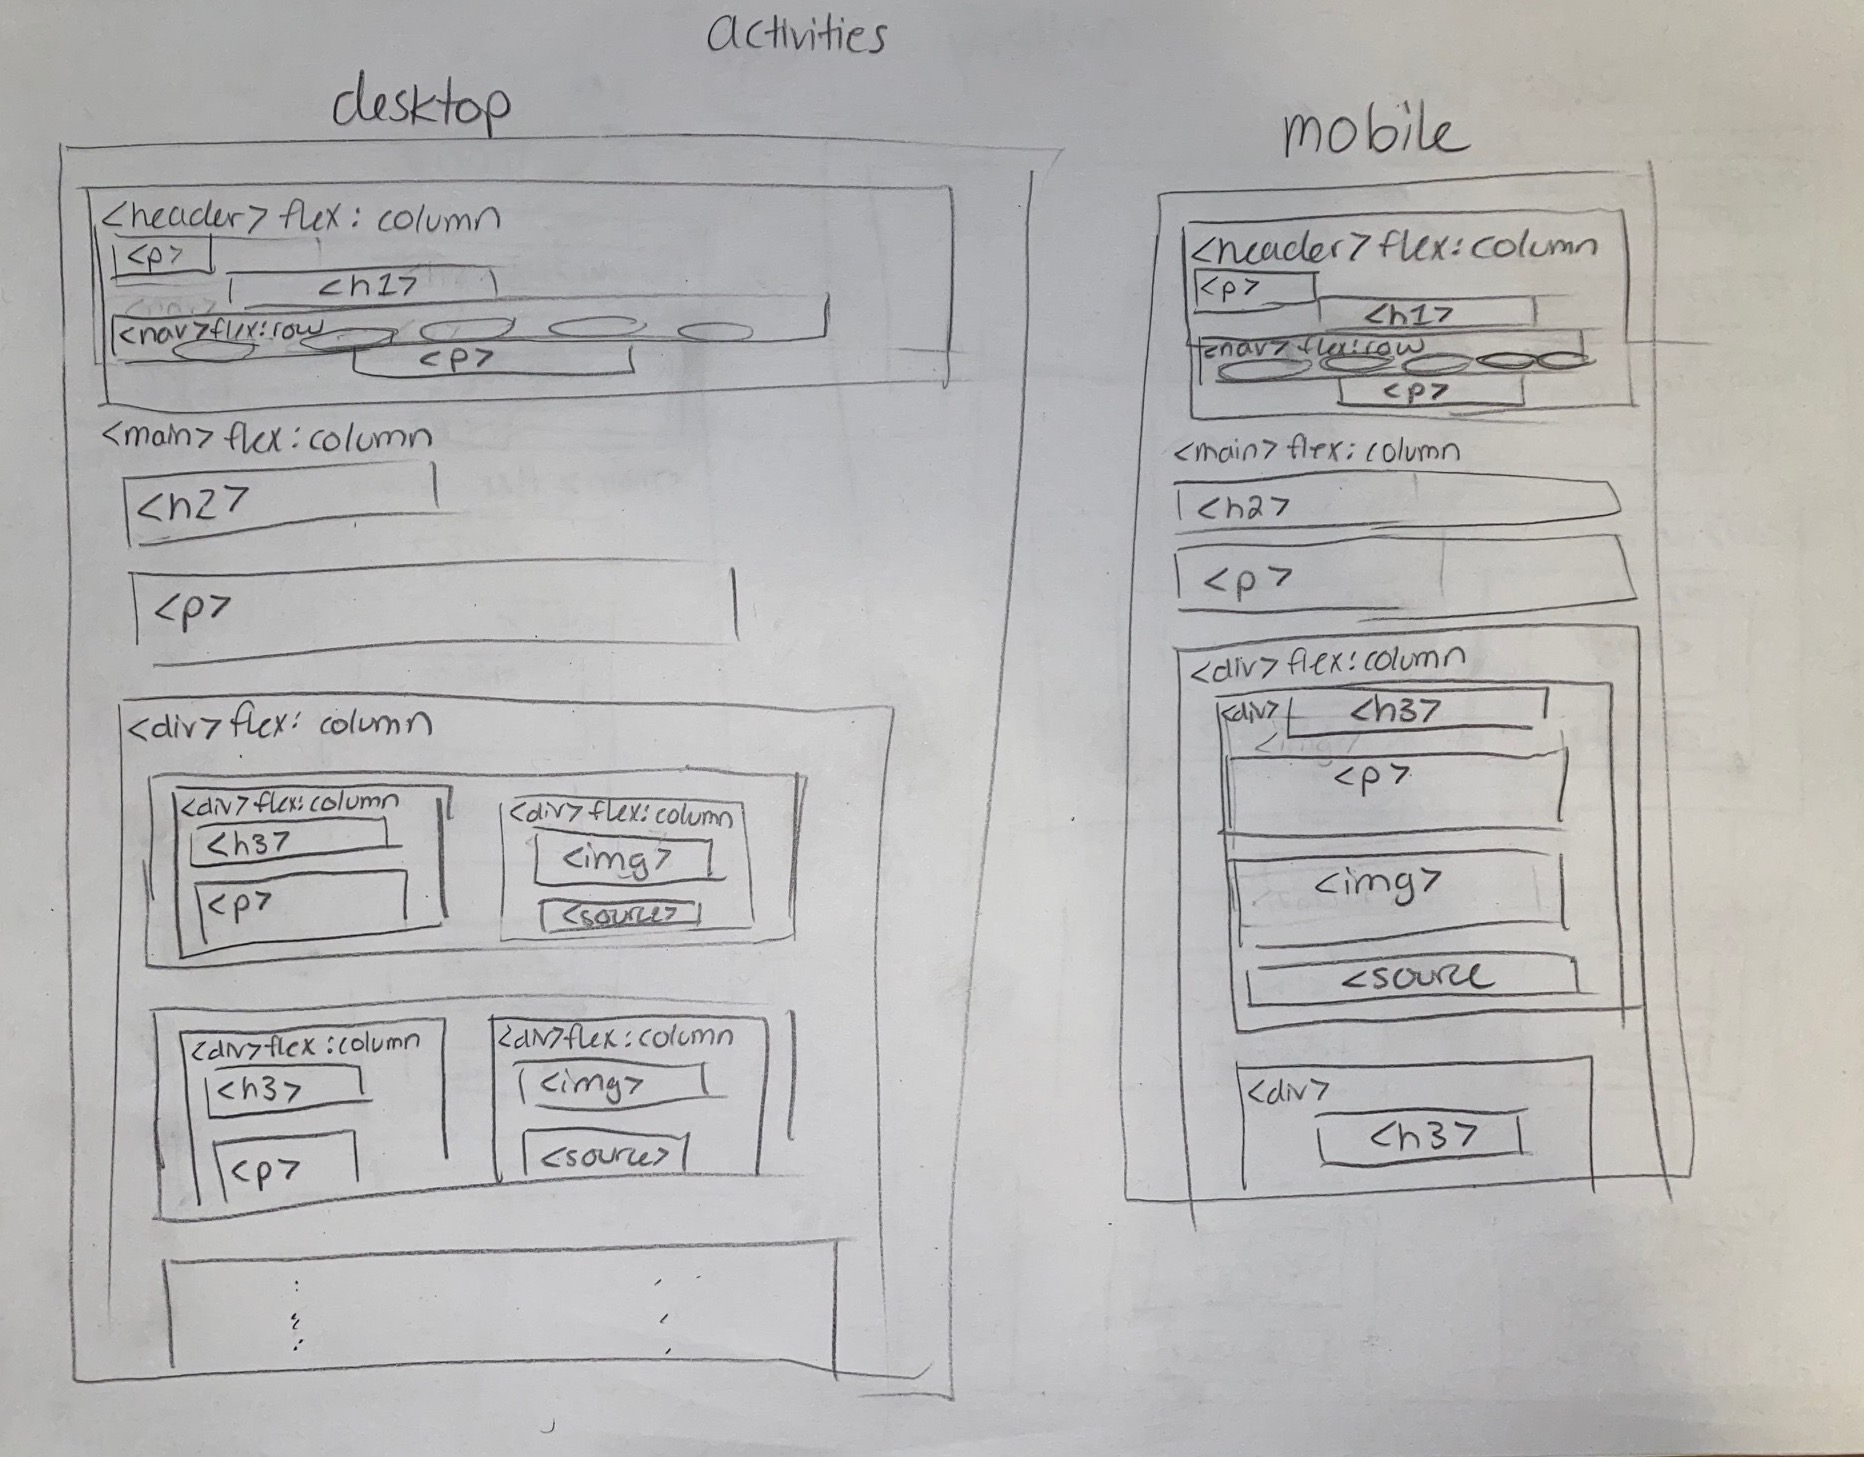 activities
desktop
<header> flex: column
<p>
<h1>
<nav> flex: row
<p>
<main> flex: column
<h2>
<p>
<div> flex: column
<div> flex: column
<h3>
<p>
<div> flex: column
<img>
<source>
<div> flex: column
<h3>
<p>
<div> flex: column
<img>
<source>
mobile
<header> flex: column
<p>
<h1>
<nav> flex: row
<p>
<main> flex: column
<h2>
<p>
<div> flex: column
<div>
<h3>
<img>
<p>
<img>
<source
<div>
<h3>